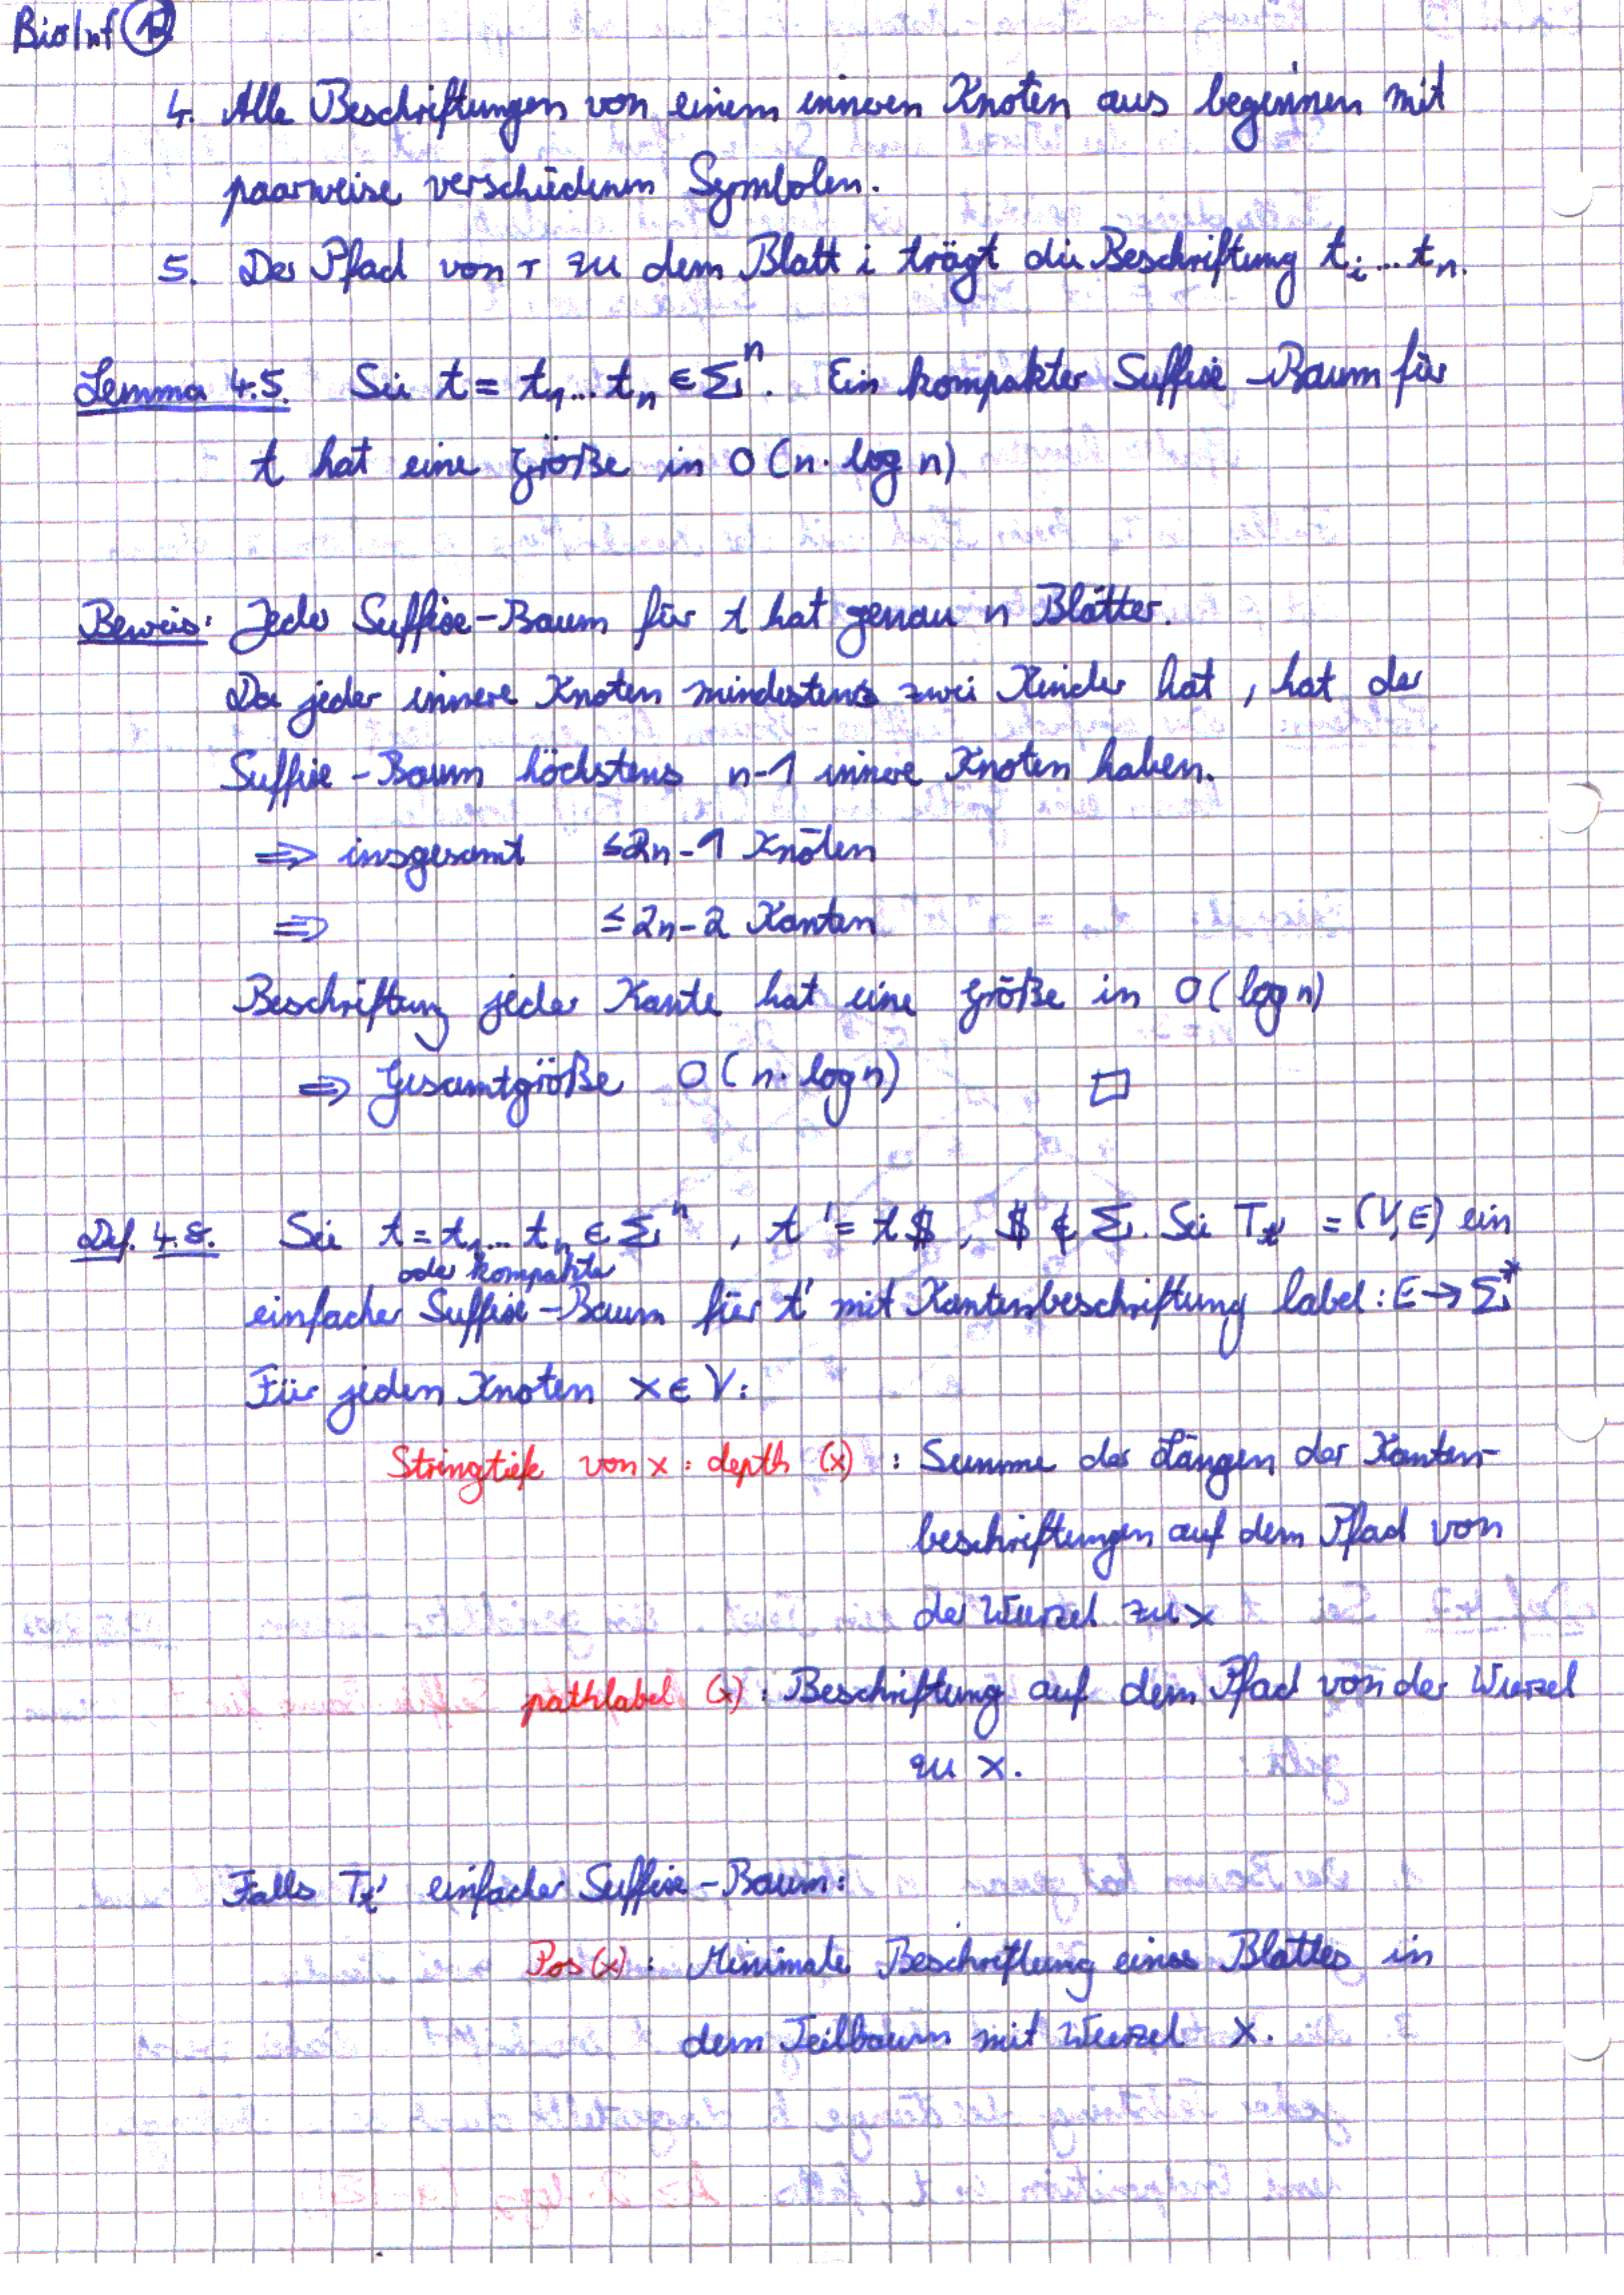 BioInf 13
4. Alle Beschriftungen von einem inneren Knoten aus beginnen mit
paarweise verschiedenen Symbolen.
5. Der Pfad von r zu dem Blatt i trägt die Beschriftung t_i...t_n.
Lemma 4.5. Sei t = t_1...t_n ∈ Σ^n. Ein kompakter Suffix-Baum für
t hat eine Größe in O(n·log n)
Beweis: Jeder Suffix-Baum für t hat genau n Blätter.
Da jeder innere Knoten mindestens zwei Kinder hat, hat der
Suffix-Baum höchstens n-1 innere Knoten haben.
⇒ insgesamt ≤ 2n-1 Knoten
⇒ ≤ 2n-2 Kanten
Beschriftung jeder Kante hat eine Größe in O(log n)
⇒ Gesamtgröße O(n·log n) □
Def. 4.8. Sei t = t_1...t_n ∈ Σ^n, t' = t$, $ ∉ Σ. Sei T_t' = (V,E) ein
oder kompakter
einfacher Suffix-Baum für t' mit Kantenbeschriftung label: E → Σ*
Für jeden Knoten x ∈ V:
Stringtiefe von x: depth (x) : Summe der Längen der Kanten-
beschriftungen auf dem Pfad von
der Wurzel zu x
pathlabel (x): Beschriftung auf dem Pfad von der Wurzel
zu x.
Falls T_t' einfacher Suffix-Baum:
Pos(x): Minimale Beschriftung eines Blattes in
dem Teilbaum mit Wurzel x.